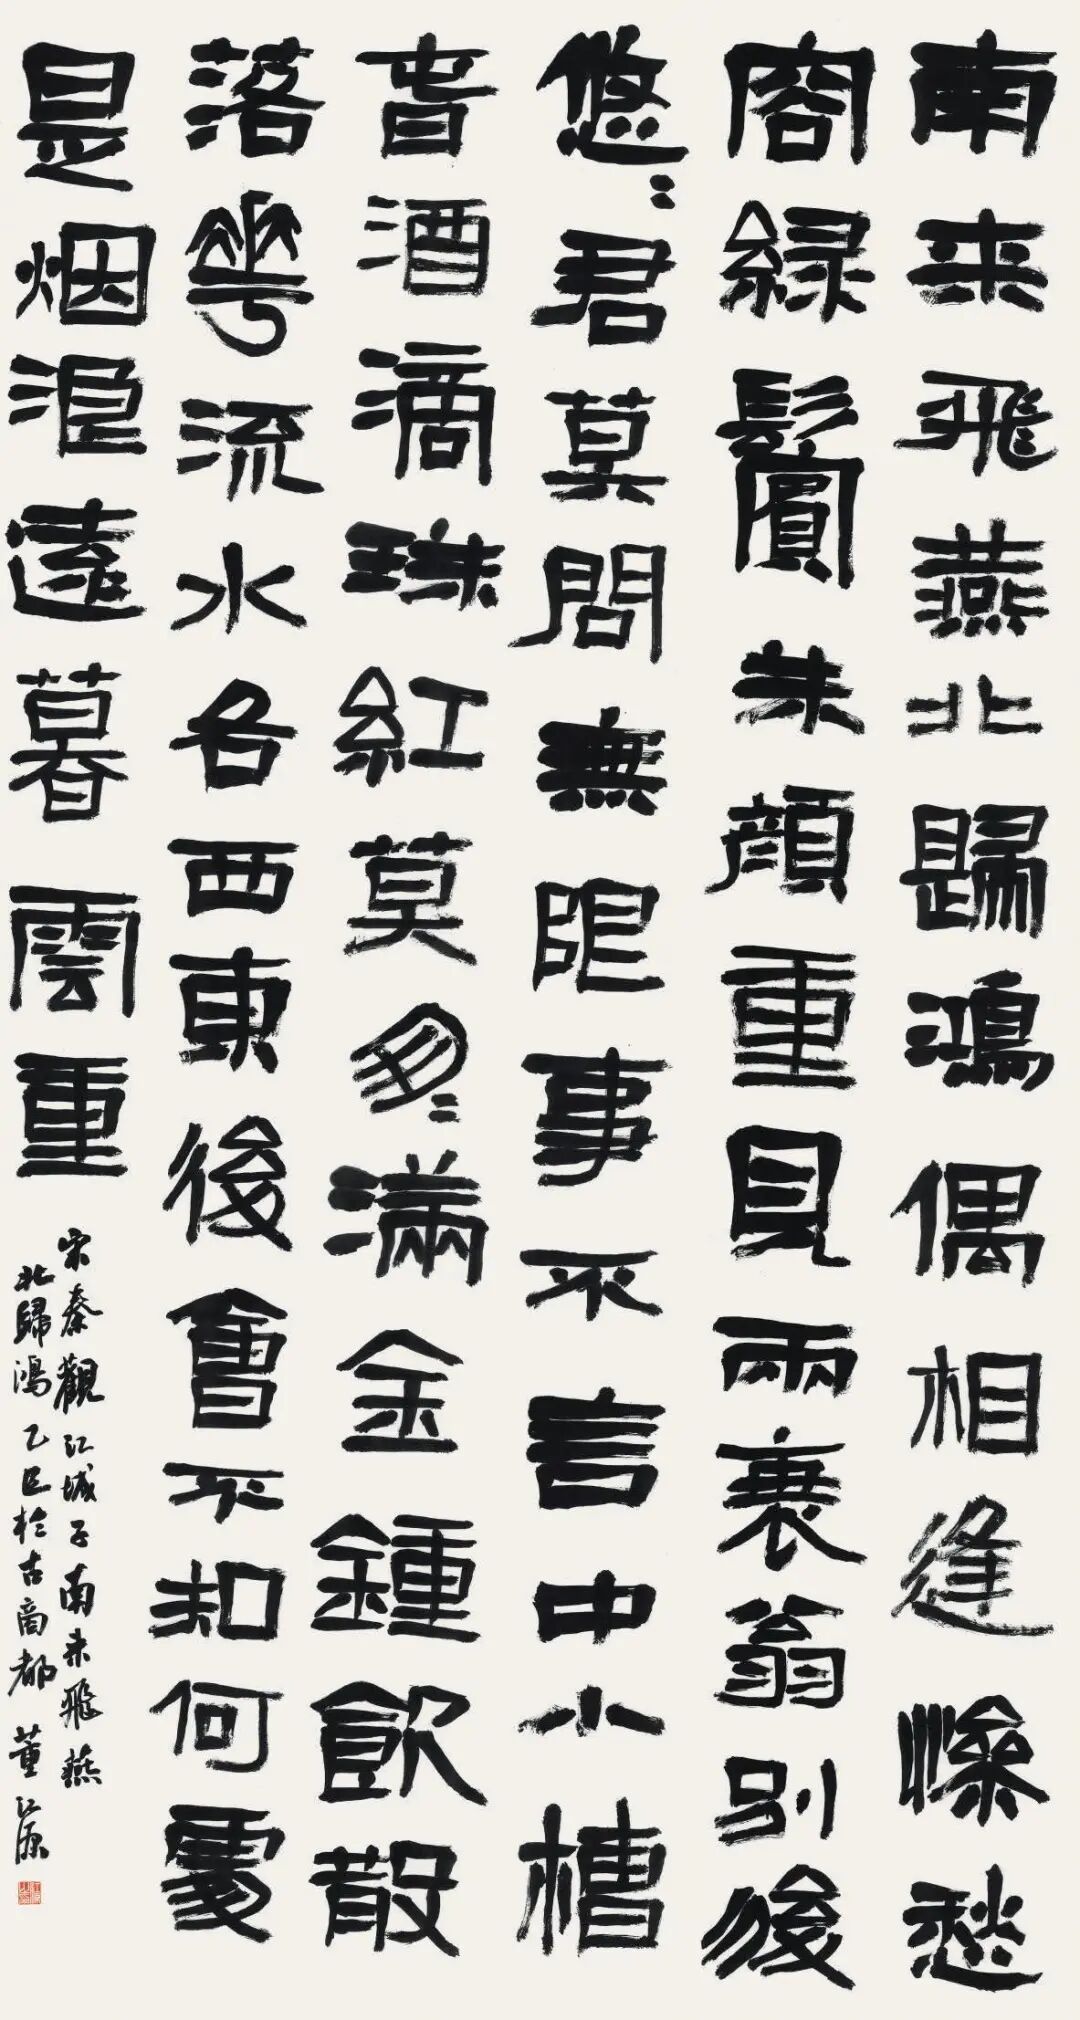 南来飛燕北歸鴻偶相逢慘愁
容綠鬢朱顔重見兩衰翁別後
悠〻君莫問無限事不言中小槽
春酒滴珠紅莫匆〻滿金鍾飲散
落華流水各西東後會不知何處
是烟浪遠暮雲重
宋秦觀江城子南来飛燕
北歸鴻乙巳於古商都董江源